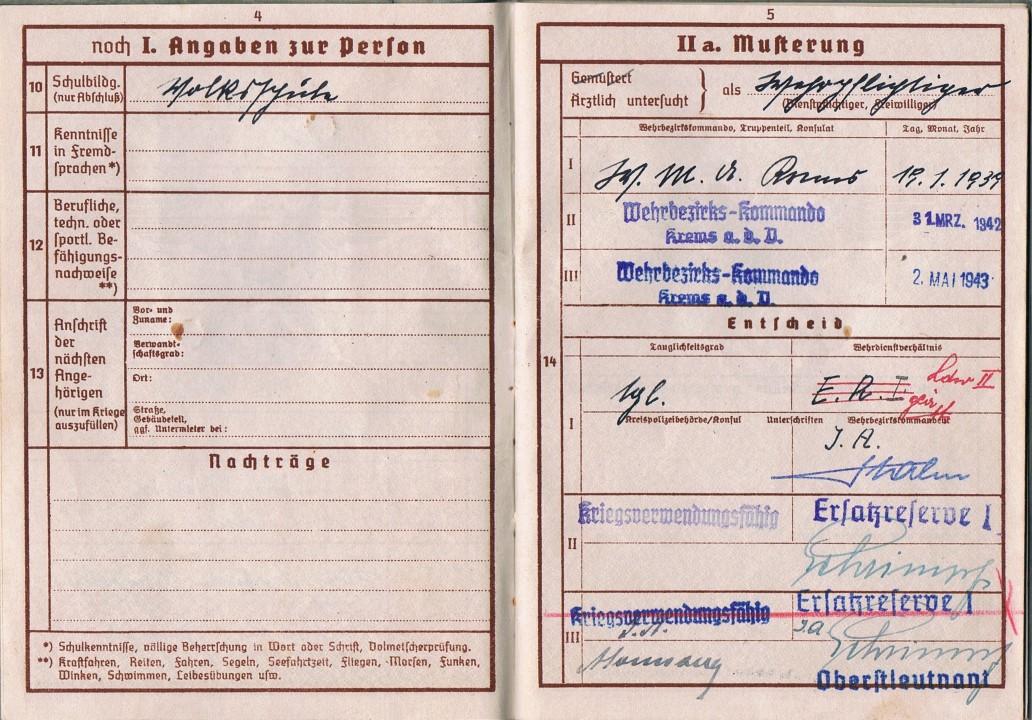 4
noch I. Angaben zur Person
10
Schulbildg.
(nur Abschluß)
Volksschule
11
Kenntnisse
in Fremd-
sprachen *)
12
Berufliche,
techn. oder
sportl. Be-
fähigungs-
nachweise
**)
13
Anschrift
der
nächsten
Ange-
hörigen
(nur im Kriege
auszufüllen)
Vor- und
Zuname:
Verwandt-
schaftsgrad:
Ort:
Straße,
Gebäudeteil,
ggf. Untermieter bei:
Nachträge
*) Schulkenntnisse, völlige Beherrschung in Wort oder Schrift, Dolmetscherprüfung.
**) Kraftfahren, Reiten, Fahren, Segeln, Seefahrtzeit, Fliegen, Morsen, Funken,
Winken, Schwimmen, Leibesübungen usw.
5
IIa. Musterung
Gemustert
Ärztlich untersucht
als Wehrpflichtiger
(Dienstpflichtiger, Freiwilliger)
Wehrbezirkskommando, Truppenteil, Konsulat
Tag, Monat, Jahr
I
W. M. A. Krems
19.1.1939
II
Wehrbezirks-Kommando
Krems a. d. D.
31. MRZ. 1942
III
Wehrbezirks-Kommando
Krems a. d. D.
2. MAI 1943
Entscheid
14
Tauglichkeitsgrad
Wehrdienstverhältnis
I
tgl.
E. R. I.
Ldw II
Kreispolizeibehörde/Konsul
Unterschriften
Wehrbezirkskommandeur
J. A.
II
Kriegsverwendungsfähig
Ersatzreserve I
Schrimpf
III
Kriegsverwendungsfähig
Ersatzreserve I
J.A.
Schrimpf
Oberstleutnant